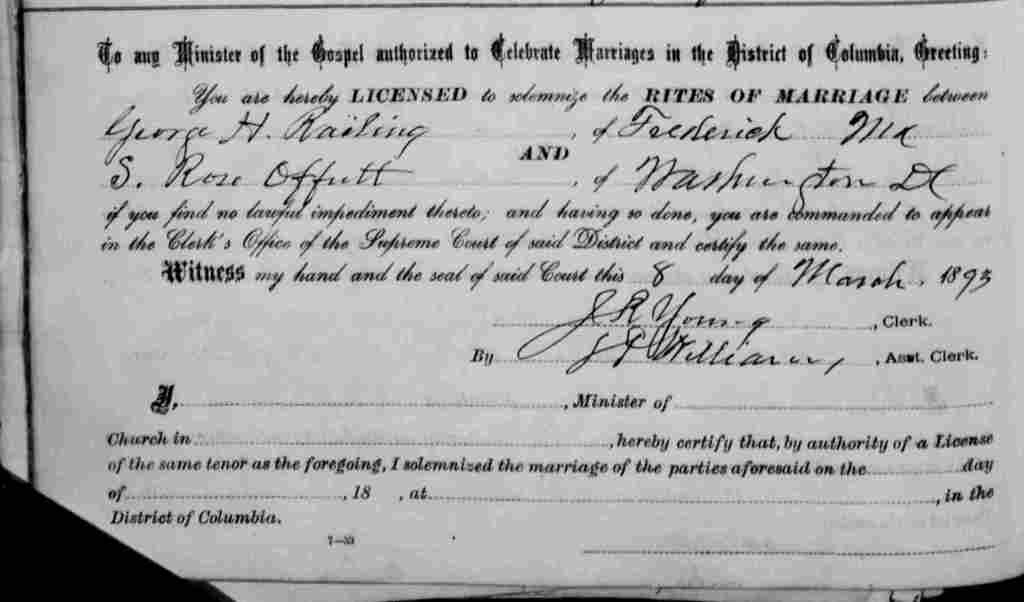 To any Minister of the Gospel authorized to Celebrate Marriages in the District of Columbia, Greeting:
You are hereby LICENSED to solemnize the RITES OF MARRIAGE between
George H. Railing, of Frederick Md
AND
S. Rose Offutt, of Washington DC
if you find no lawful impediment thereto; and having so done, you are commanded to appear
in the Clerk's Office of the Supreme Court of said District and certify the same.
Witness my hand and the seal of said Court this 8 day of March, 1893
J R Young, Clerk.
By J P Williams, Asst. Clerk.
I, , Minister of
Church in , hereby certify that, by authority of a License
of the same tenor as the foregoing, I solemnized the marriage of the parties aforesaid on the day
of , 18 , at , in the
District of Columbia.